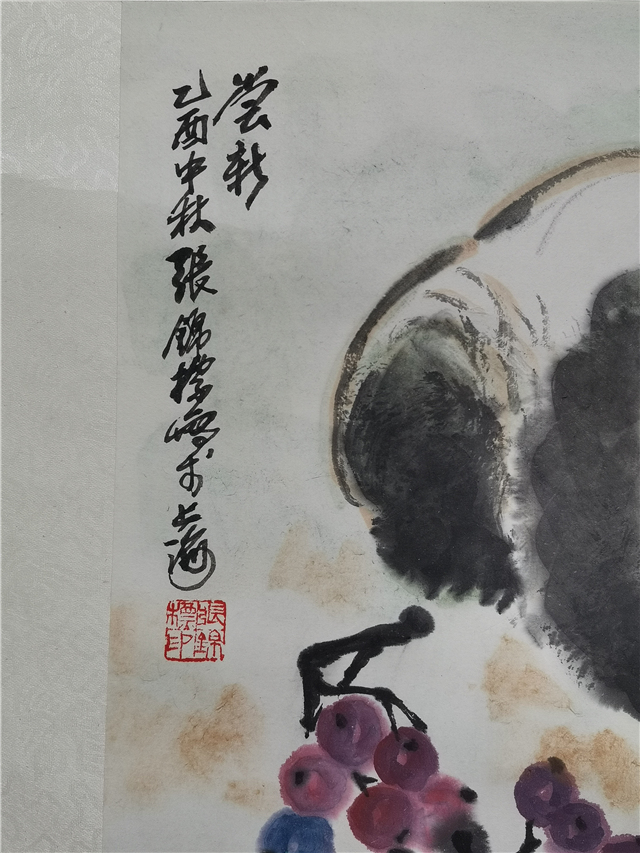 尝新
乙酉中秋張錦標寫於上海
張錦標印